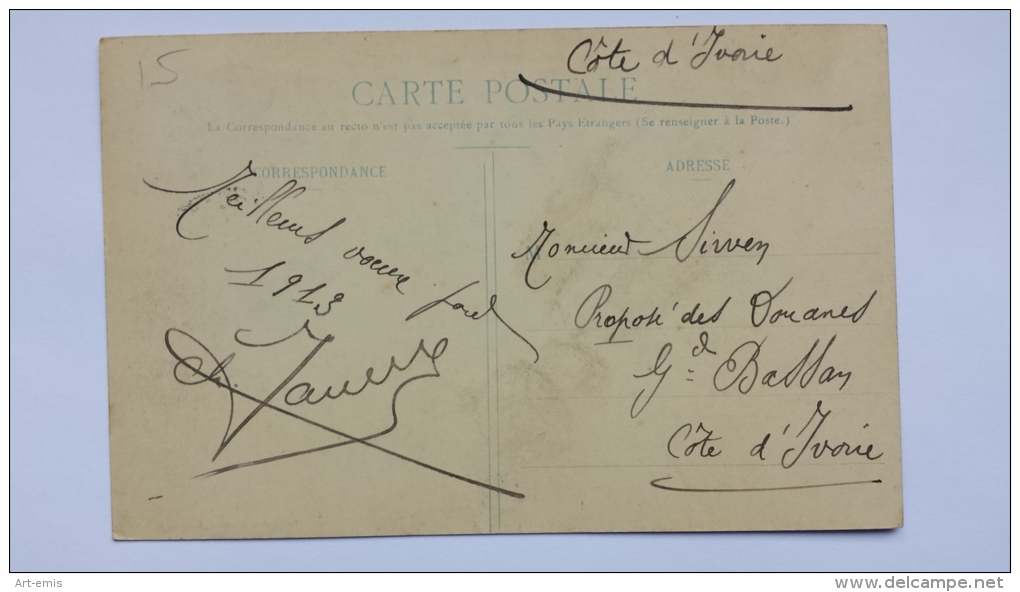 15
Côte d'Ivoire
CARTE POSTALE
La Correspondance au recto n'est pas acceptée par tous les Pays Etrangers (Se renseigner à la Poste.)
CORRESPONDANCE
Meilleurs vœux
1913
ADRESSE
Monsieur Sirven
Préposé des Douanes
Gd Bassam
Côte d'Ivoire
Art-emis
www.delcampe.net